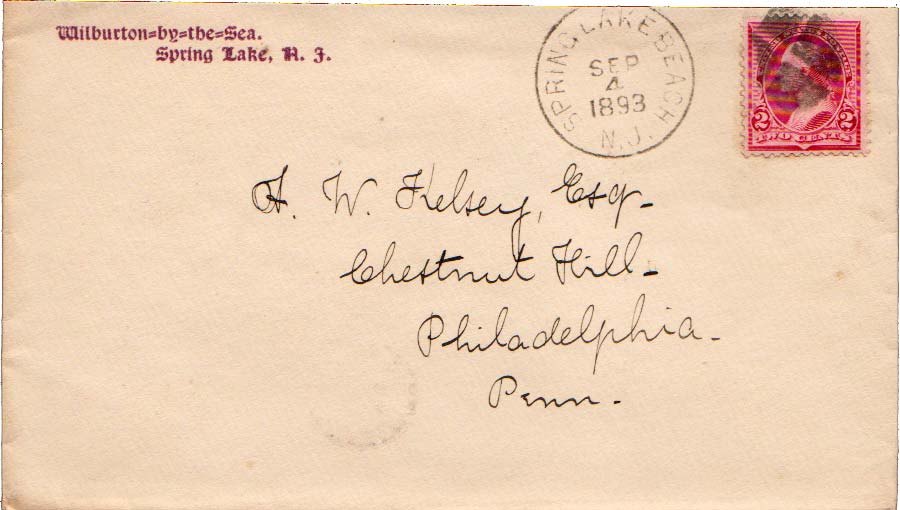 Wilburton=by=the=Sea.
Spring Lake, N. J.
SPRING LAKE BEACH
SEP
4
1893
N.J.
2 2
TWO CENTS
H. W. Kelsey, Esq-
Chestnut Hill-
Philadelphia-
Penn-